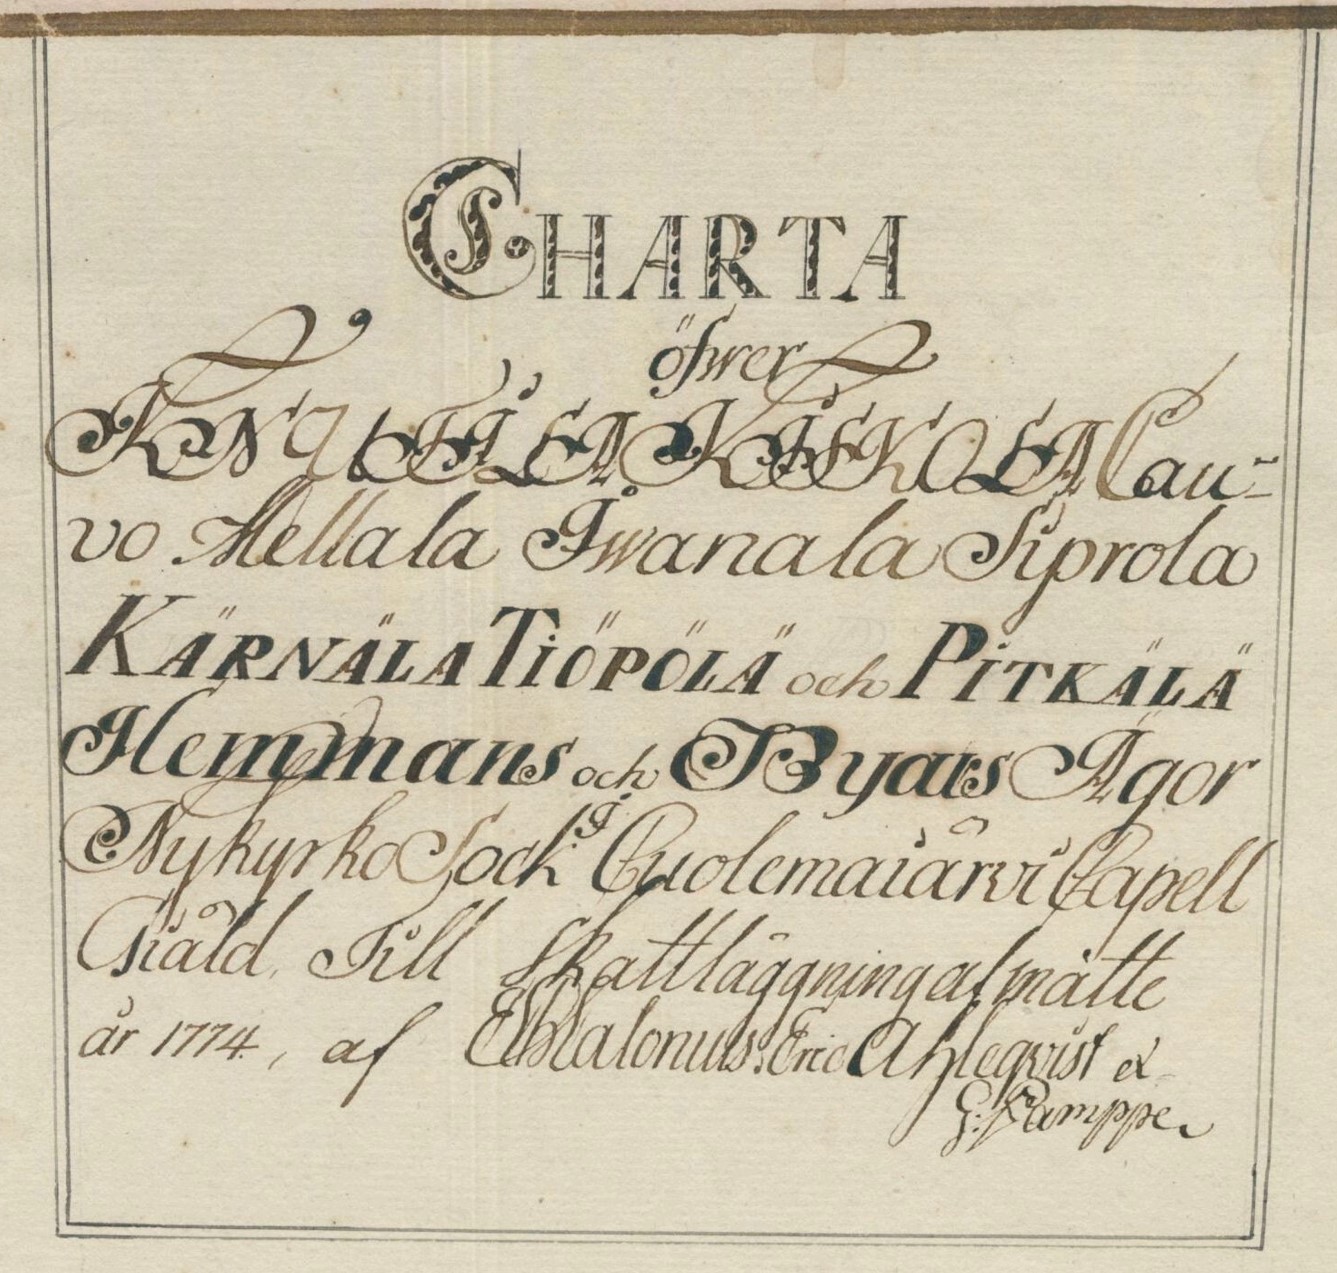 CHARTA
öfwer
KNUTILA KISKOLA Cau=
vo Mellala Iwanala Siprola
KÄRNÄLA TIÖPÖLÄ och PITKÄLÄ
Hemmans och Byars Ägor
Nykyrko Sock:n Cuolemaiärvi Capell
Giäld. Till Skattläggning afmätte
år 1774., af E Malonius: Eric Ahleqvist &
G: Ramppe.